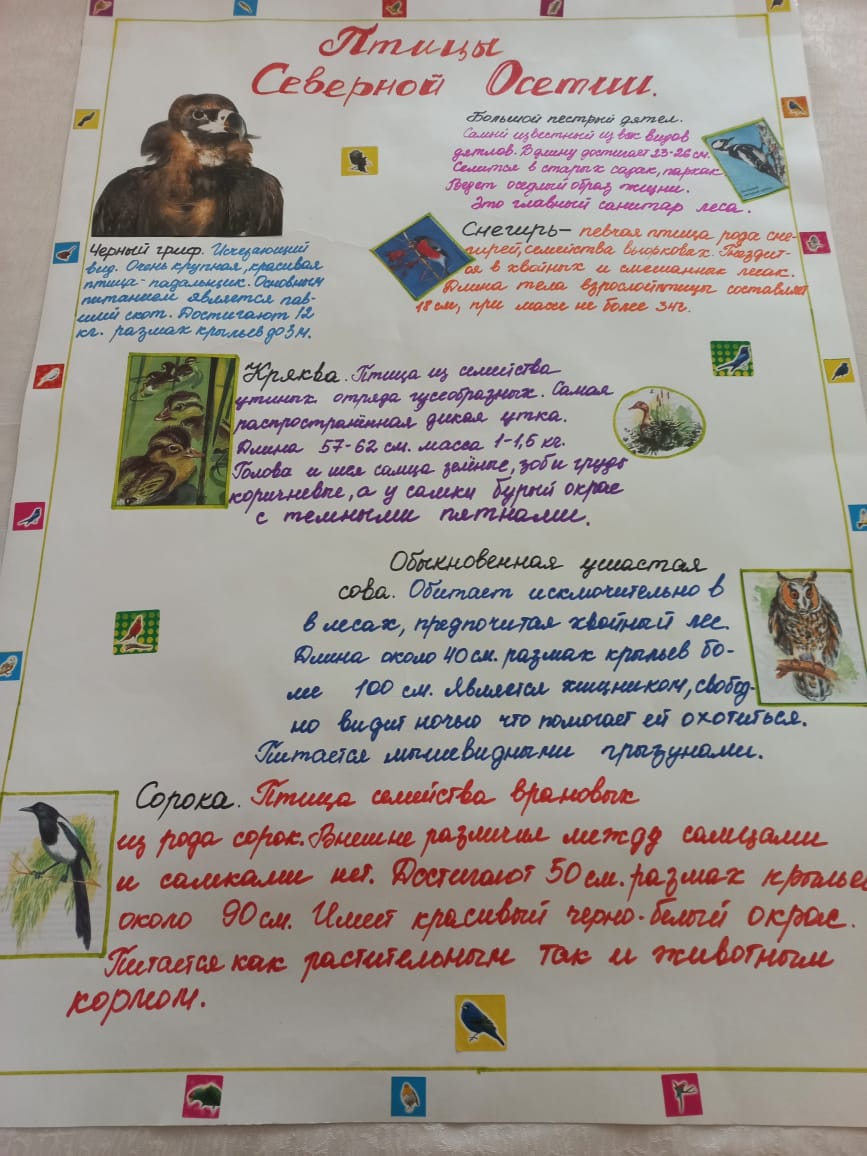 Птицы
Северной Осетии.
Большой пестрый дятел.
Самый известный из всех видов
дятлов. В длину достигает 23-26 см.
Селится в старых садах, парках
Ведет оседлый образ жизни.
Это главный санитар леса.
Снегирь – певчая птица рода сне-
гирей, семейства вьюрковых. Гнездит-
ся в хвойных и смешанных лесах.
Длина тела взрослой птицы составляет
18 см, при массе не более 34 г.
Черный гриф. Исчезающий
вид. Очень крупная, красивая
птица - падальщик. Основным
питанием является пав-
ший скот. Достигают 12
кг. размах крыльев до 3 м.
Кряква. Птица из семейства
утиных отряда гусеобразных. Самая
распространённая дикая утка.
Длина 57-62 см. масса 1-1,5 кг.
Голова и шея самца зелёные, зоб и грудь
коричневые, а у самки бурый окрас
с темными пятнами.
Обыкновенная ушастая
сова. Обитает исключительно в
в лесах, предпочитая хвойный лес.
Длина около 40 см. размах крыльев бо-
лее 100 см. Является хищником, свобод-
но видит ночью что помогает ей охотиться.
Питается мышевидными грызунами.
Сорока. Птица семейства врановых
из рода сорок. Внешне различия между самцами
и самками нет. Достигают 50 см. размах крыльев
около 90 см. Имеет красивый черно-белый окрас.
Питается как растительным так и животным
кормом.